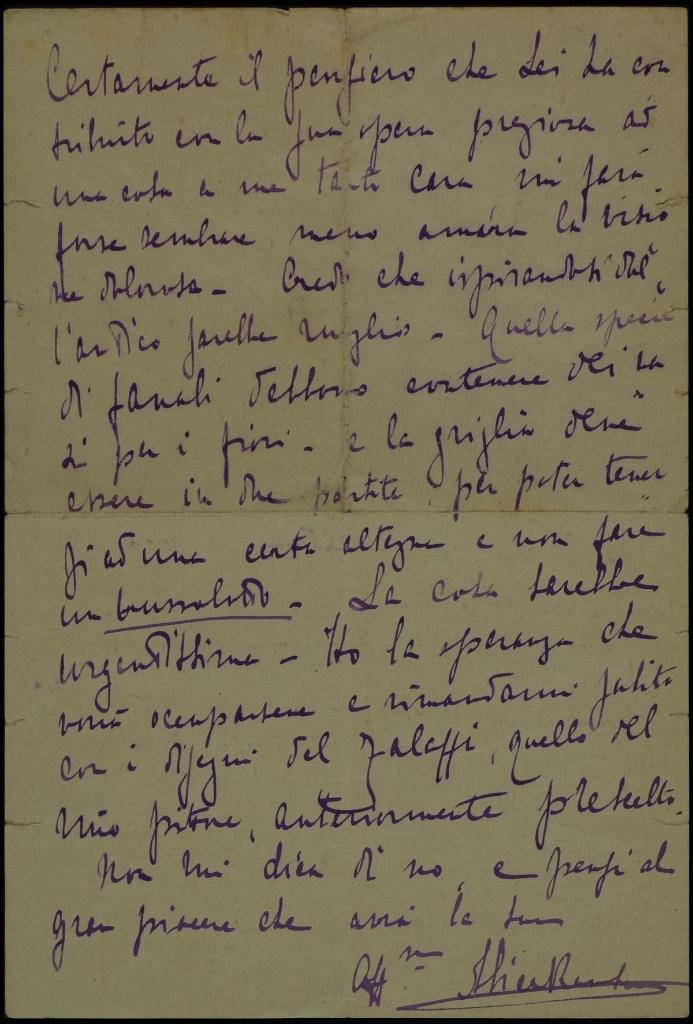 Certamente il pensiero che Lei ha con
tribuito con la sua opera preziosa ad
una cosa a me tanto cara mi farà
forse sembrare meno amara la visio
ne dolorosa - Credo che ispirandosi dal
l'antico sarebbe meglio - Quella specie
di fanali debbono contenere dei va
si per i fiori - e la griglia deve
essere in due partite, per poter tener
si ad una certa altezza e non fare
un bussolotto - La cosa sarebbe
urgentissima - Ho la speranza che
vorrà occuparsene e rimandarmi subito
con i disegni del Zalaffi, quello del
mio pittore, anteriormente prescelto.
Non mi dica di no, e pensi al
gran piacere che avrà la sua
Aff.ma